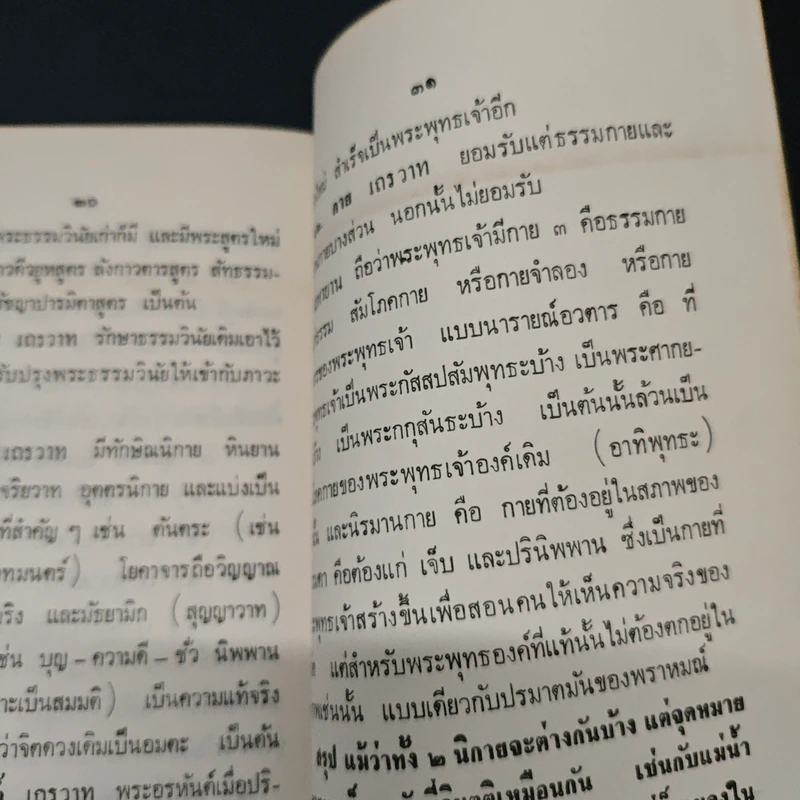 ๓๐
พระธรรมวินัยเก่าก็มี และมีพระสูตรใหม่
าวดีวยูหสูตร ลังกาวตารสูตร สัทธรรม-
รัชญาปารมิตาสูตร เป็นต้น
เถรวาท รักษาธรรมวินัยเดิมเอาไว้
รับปรุงพระธรรมวินัยให้เข้ากับภาวะ
เถรวาท มีทักษิณนิกาย หินยาน
จริยวาท อุดตรนิกาย และแบ่งเป็น
ที่สำคัญ ๆ เช่น ตันตระ (เช่น
ทมนตร์) โยคาจารถือวิญญาณ
ริง และมัธยามิก (สุญญาวาท)
ช่น บุญ – ความดี – ชั่ว นิพพาน
าะเป็นสมมติ) เป็นความแท้จริง
ว่าจิตดวงเดิมเป็นอมตะ เป็นต้น
เถรวาท พระอรหันต์เมื่อปริ-
๓๑
ใหม่ สำเร็จเป็นพระพุทธเจ้าอีก
กาย เถรวาท ยอมรับแต่ธรรมกายและ
กายบางส่วน นอกนั้นไม่ยอมรับ
หายาน ถือว่าพระพุทธเจ้ามีกาย ๓ คือธรรมกาย
ธรรม สัมโภคกาย หรือกายจำลอง หรือกาย
ของพระพุทธเจ้า แบบนารายณ์อวตาร คือ ที่
พุทธเจ้าเป็นพระกัสสปสัมพุทธะบ้าง เป็นพระศากย-
เป็นพระกกุสันธะบ้าง เป็นต้นนั้นล้วนเป็น
กายของพระพุทธเจ้าองค์เดิม (อาทิพุทธะ)
และนิรมานกาย คือ กายที่ต้องอยู่ในสภาพของ
คือต้องแก่ เจ็บ และปรินิพพาน ซึ่งเป็นกายที่
พุทธเจ้าสร้างขึ้นเพื่อสอนคนให้เห็นความจริงของ
แต่สำหรับพระพุทธองค์ที่แท้นั้นไม่ต้องตกอยู่ใน
เช่นนั้น แบบเดียวกับปรมาตมันของพราหมณ์
สรุป แม้ว่าทั้ง ๒ นิกายจะต่างกันบ้าง แต่จุดหมาย
เหมือนกัน เช่นกับแม่น้ำ